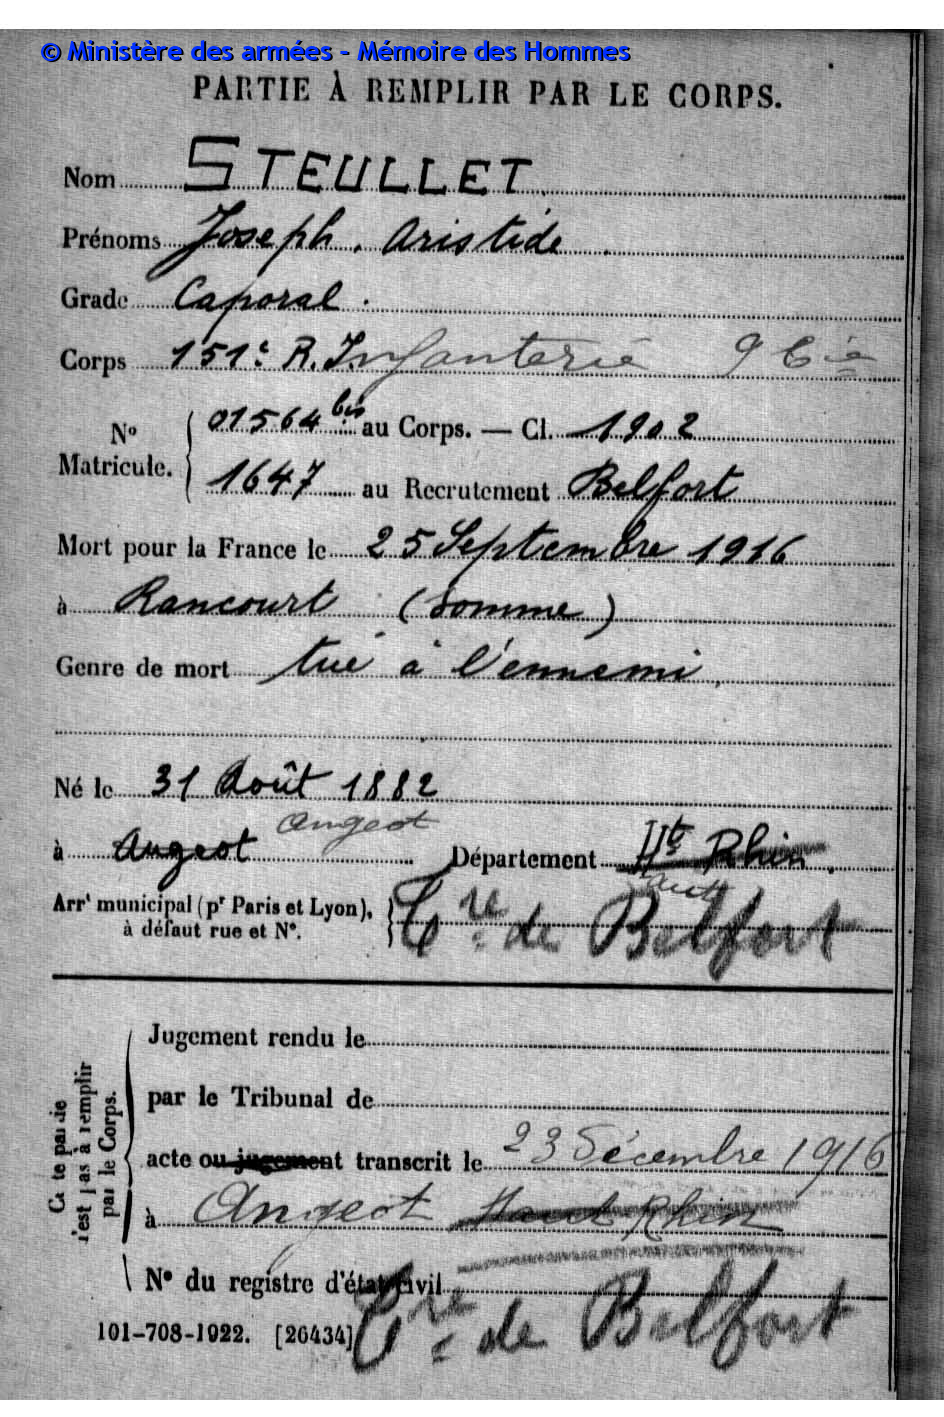 © Ministère des armées - Mémoire des Hommes
PARTIE À REMPLIR PAR LE CORPS.
Nom STEULLET.
Prénoms Joseph. Aristide.
Grade Caporal.
Corps 151e R. Infanterie 9 Cie
No Matricule. 01564 bis au Corps. — Cl. 1902
1647 au Recrutement Belfort
Mort pour la France le 25 Septembre 1916
à Rancourt (Somme)
Genre de mort tué à l'ennemi.
Né le 31 Août 1882
angeot
à Angeot Département Ht Rhin.
haut
Arrt municipal (pr Paris et Lyon),
à défaut rue et No.
Cre de Belfort
Cette partie
n'est pas à remplir
par le Corps.
Jugement rendu le
par le Tribunal de
acte ou jugement transcrit le 23 Décembre 1916
à Angeot Haut Rhin
No du registre d'état civil
Cre de Belfort
101-708-1922. [26434]